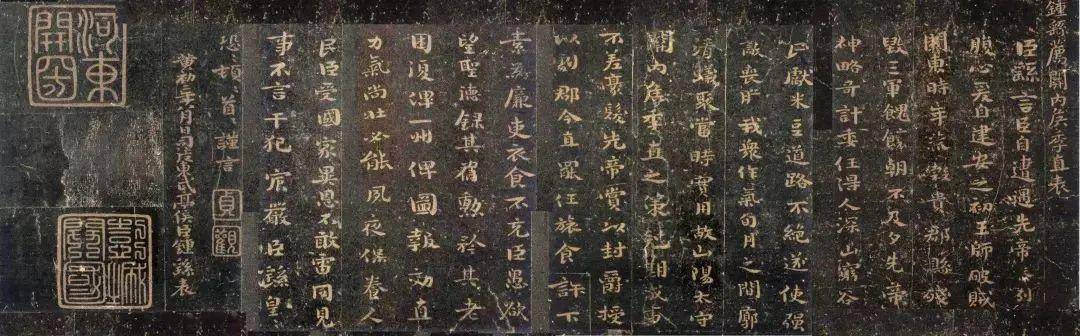 鍾繇薦關內侯季直表
臣繇言臣自遭遇先帝忝列
腹心爰自建安之初王師破賊
關東時年荒穀貴郡縣殘
毀三軍餽饟朝不及夕先帝
神略奇計委任得人深山窮谷
民獻米豆道路不絕遂使强
敵喪膽我衆作氣旬月之間廓
清蟻聚當時實用故山陽太守
關內侯季直之策尅期成事
不差豪髮先帝賞以封爵授
以劇郡今直罷任旅食許下
素爲廉吏衣食不充臣愚欲
望聖德錄其舊勳矜其老
困復俾一州俾圖報効直
力氣尚壯必能夙夜保養人
民臣受國家異恩不敢雷同見
事不言干犯宸嚴臣繇皇
恐頓首謹言
貞觀
黃初二年八月日司徒東武亭侯臣鍾繇表
河東